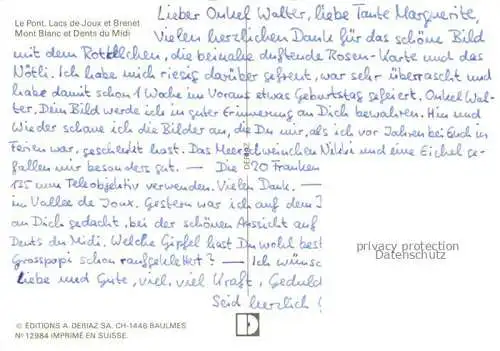 Le Pont, Lacs de Joux et Brenet
Mont Blanc et Dents du Midi
Lieber Onkel Walter, liebe Tante Marguerite,
Vielen herzlichen Dank für das schöne Bild
mit dem Rotkelchen, die beinahe duftende Rosen-Karte und das
Nötli. Ich habe mich riesig darüber gefreut, war sehr überrascht und
habe damit schon 1 Woche im Voraus etwas Geburtstag gefeiert. Onkel Wal-
ter, Dein Bild werde ich in guter Erinnerung an Dich bewahren. Hin und
Wieder schaue ich die Bilder an, die Du mir, als ich vor Jahren bei Euch in
Ferien war, geschenkt hast. Das Meerschweinchen Nikki und eine Eichel ge-
fallen mir besonders gut. — Die 20 Franken
135 mm Teleobjektiv verwenden. Vielen Dank. —
im Vallée de Joux. Gestern war ich auf dem
an Dich gedacht, bei der schönen Aussicht auf
Dents du Midi. Welche Gipfel hast Du wohl best
Grosspapi schon raufgeklettert? — Ich wünsc
Liebe und Gute, viel, viel Kraft, Geduld
Seid herzlich
DERIAZ
privacy protection
Datenschutz
© EDITIONS A. DERIAZ SA, CH-1446 BAULMES
No 12984 IMPRIMÉ EN SUISSE.